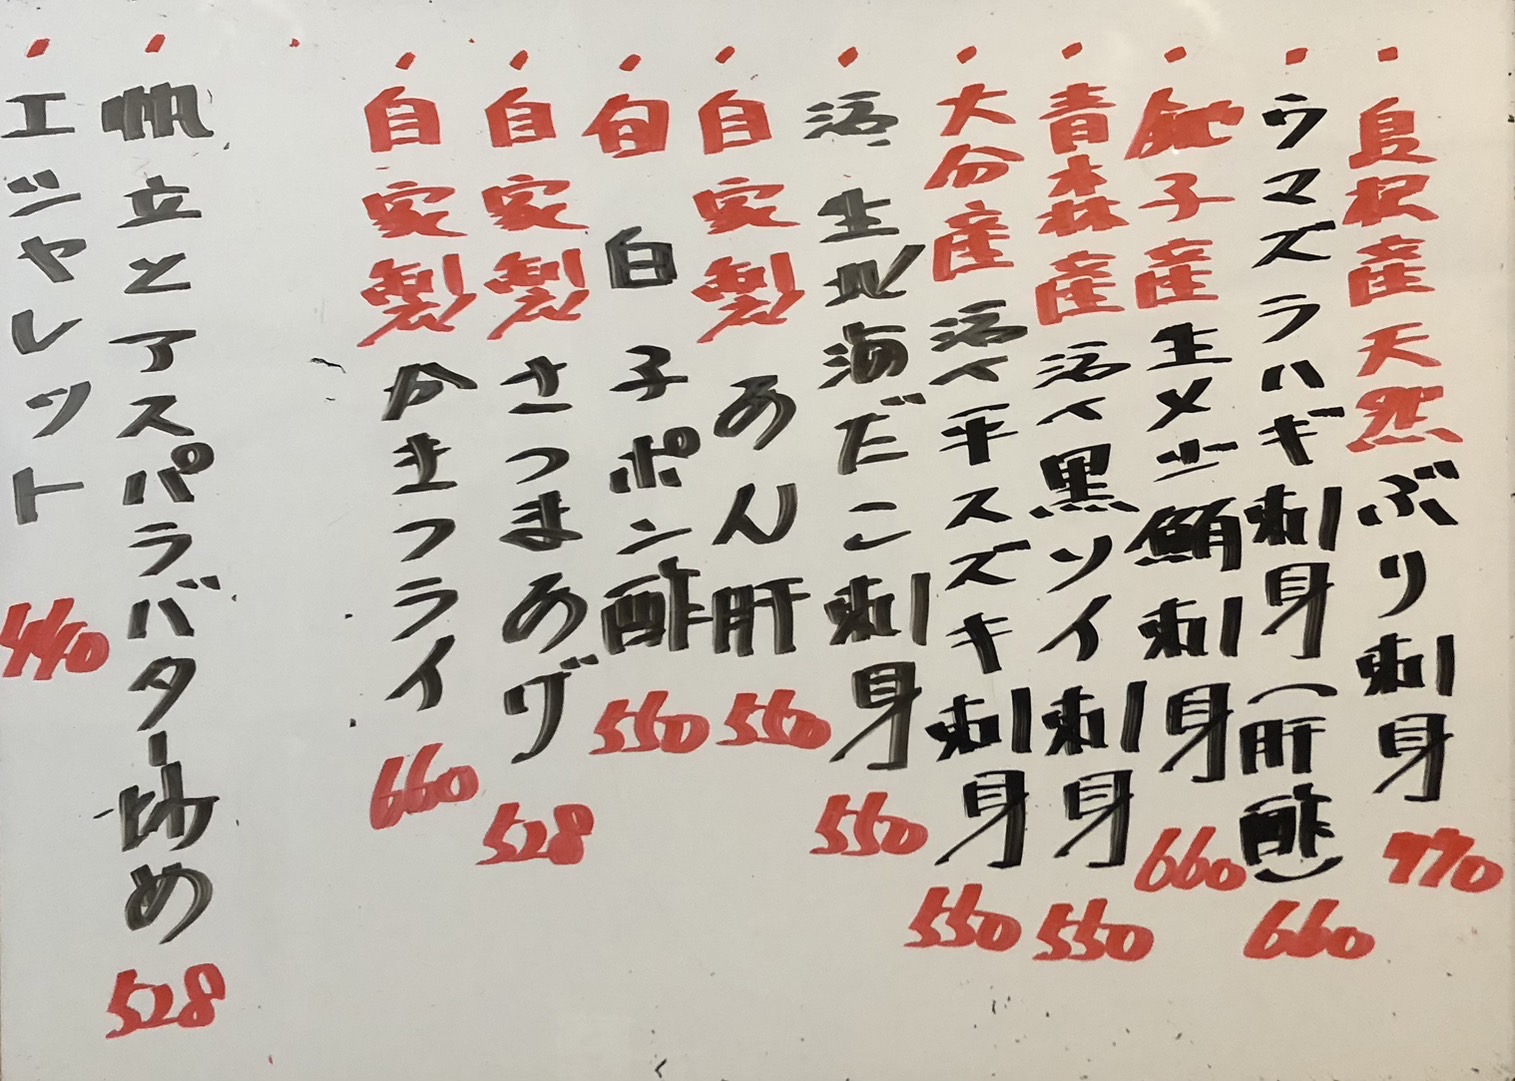 ・島根産天然ぶり刺身 770
・ウマズラハギ刺身(肝酢) 660
・銚子産生メジ鮪刺身 660
・青森産活〆黒ソイ刺身 550
・大分産活〆平スズキ刺身 550
・活生北海だこ刺身 550
・自家製あん肝 550
・旬白子ポン酢 550
・自家製さつまあげ 528
・自家製かきフライ 660
・
・帆立とアスパラバター炒め 528
・エシャレット 440